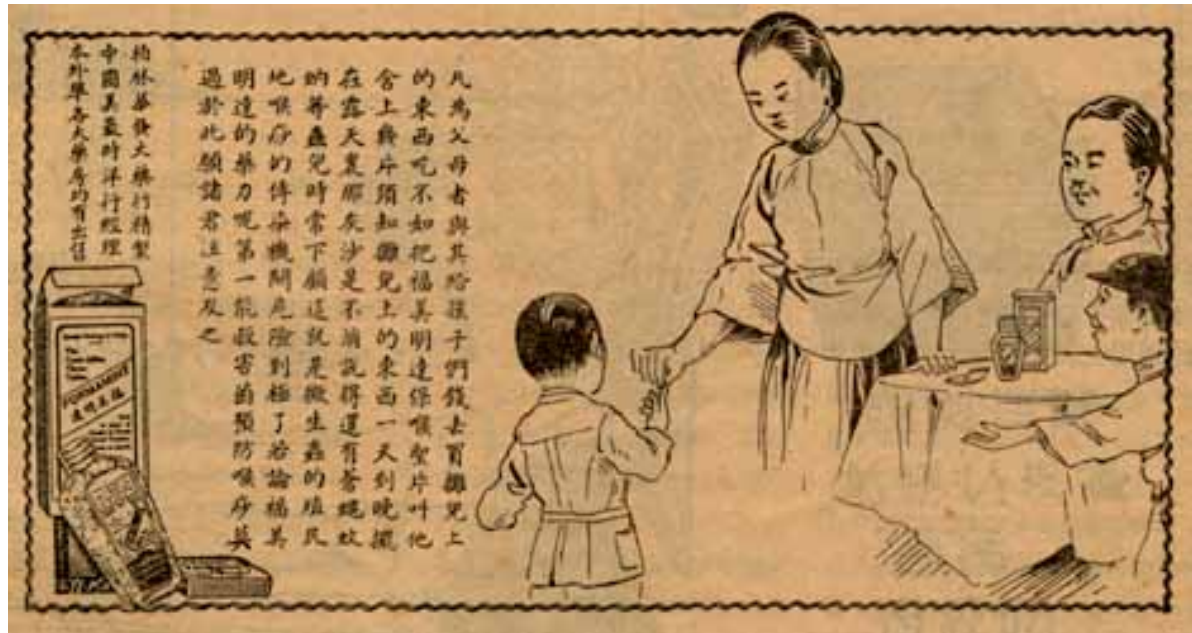 凡為父母者與其給孩子們錢去買攤兒上
的東西吃不如把福美明達保喉聖片叫他
含上幾片須知攤兒上的東西一天到晚擺
在露天裏那灰沙是不消說得還有蒼蠅蚊
蚋等蟲兒時常下顧這就是微生蟲的殖民
地喉痧的傳染機關危險到極了若論福美
明達的藥力呢第一能殺害菌預防喉痧莫
過於此願諸君注意及之
柏林華發大藥行精製
中國美最時洋行經理
本外埠各大藥房均有出售
FORMAMINT
達明美福